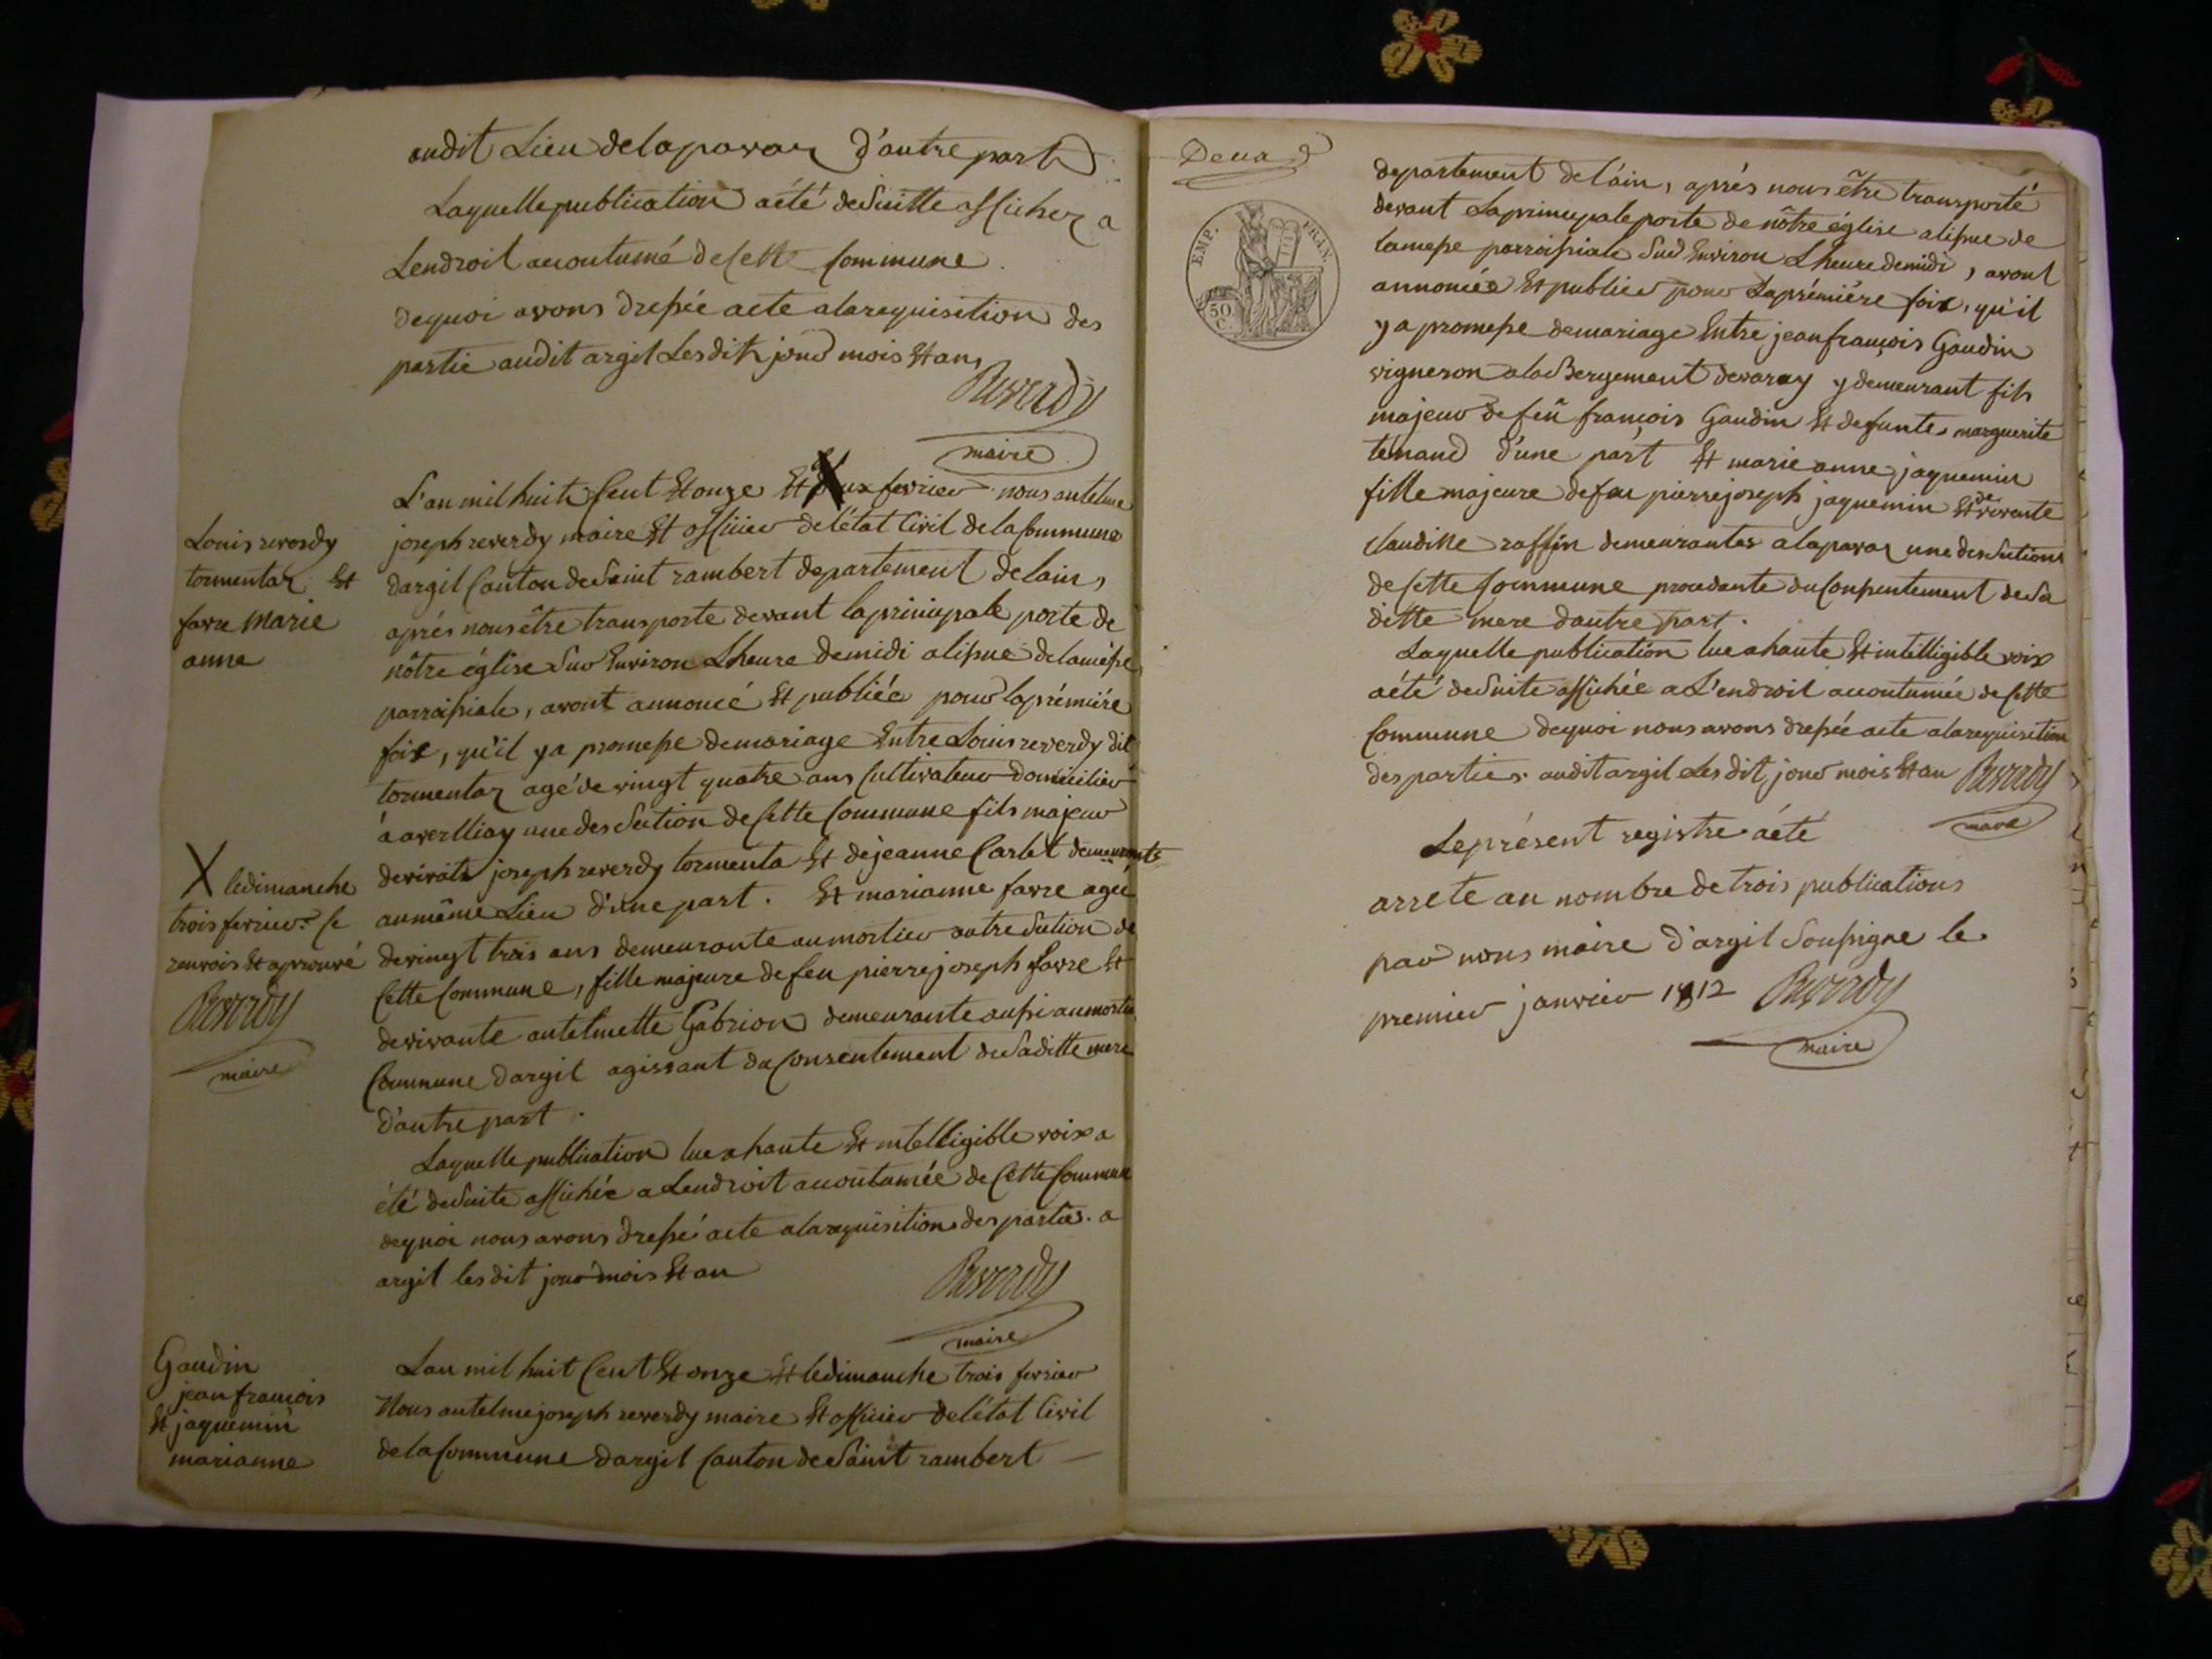 audit Lieu delaparaz d'autre part
Laquelle publication a été de Suitte afficher a
Lendroit accoutumé de Cette Commune.
dequoi avons dressée acte alarequisition des
partie audit argil Lesdits jour mois Et an,
Reverdy
maire
L'an mil huit Cent Et onze Et X fevrier nous antelme
joseph reverdy maire Et officier de l'état Civil de la Commune
dargil Canton de Saint rambert departement de lain,
aprés nous être transporte devant la principale porte de
nôtre église Sur Environ Lheure de midi a lissue de la messe
parroissiale, avont annoncé Et publiée pour la prémiére
foix, qu'il y a promesse de mariage Entre Louis reverdy dit
tormentaz agé de vingt quatre ans Cultivateur domicilier
à averlliay une des Section de Cette Commune fils majeur
de vivants joseph reverdy tormenta Et de jeanne Carlet demeurants
au même Lieu d'une part. Et marianne favre ageé
de vingt trois ans demeurante au mortier autre Section de
Cette Commune, fille majeure de feu pierre joseph favre Et
de vivante antelmette Gabrion demeurante aussi au mortier
Commune dargil agissant du Consentement de Saditte mere
d'autre part.
Laquelle publication lue a haute Et intelligible voix a
été de Suite affichée a Lendroit accoutumée de Cette Commune
dequoi nous avons dressé acte alarequisition des parties. a
argil lesdit jour mois Et an
Reverdy
maire
Louis reverdy
tormentaz Et
favre Marie
anne
X le dimanche
trois fevrier. Ce
renvois Et aprouvé
Reverdy
maire
Gaudin
jean francois
Et jaquemin
marianne
Lan mil huit Cent Et onze Et le dimanche trois fevrier
Nous antelme joseph reverdy maire Et officier de l'état Civil
de la Commune dargil Canton de Saint rambert
Deux
EMP. FRAN.
50
C.
departement de l'ain, aprés nous être transporté
devant La principale porte de nôtre église a lissue de
la messe parroissiale Sur Environ Lheure de midi, avont
annoncée Et publier pour La prémiére foix, qu'il
y a promesse de mariage Entre jean françois Gaudin
vigneron a la Bergement de varay y demeurant fils
majeur de feu françois Gaudin Et defunte marguerite
tenand d'une part Et marie anne jaquemin
fille majeure de feu pierre joseph jaquemin Et de vivante
Claudine raffin demeurantes a laparaz une des Sections
de Cette Commune procedante du Consentement de Sa
ditte mere d'autre part.
Laquelle publication lue a haute Et intelligible voix
a été de Suite affichée a L'endroit accoutumée de Cette
Commune dequoi nous avons dressée acte alarequisition
des parties. audit argil Les dit jour mois Et an Reverdy
maire
Le présent registre a été
arrete au nombre de trois publications
par nous maire d'argil Soussigne le
premier janvier 1812 Reverdy
maire